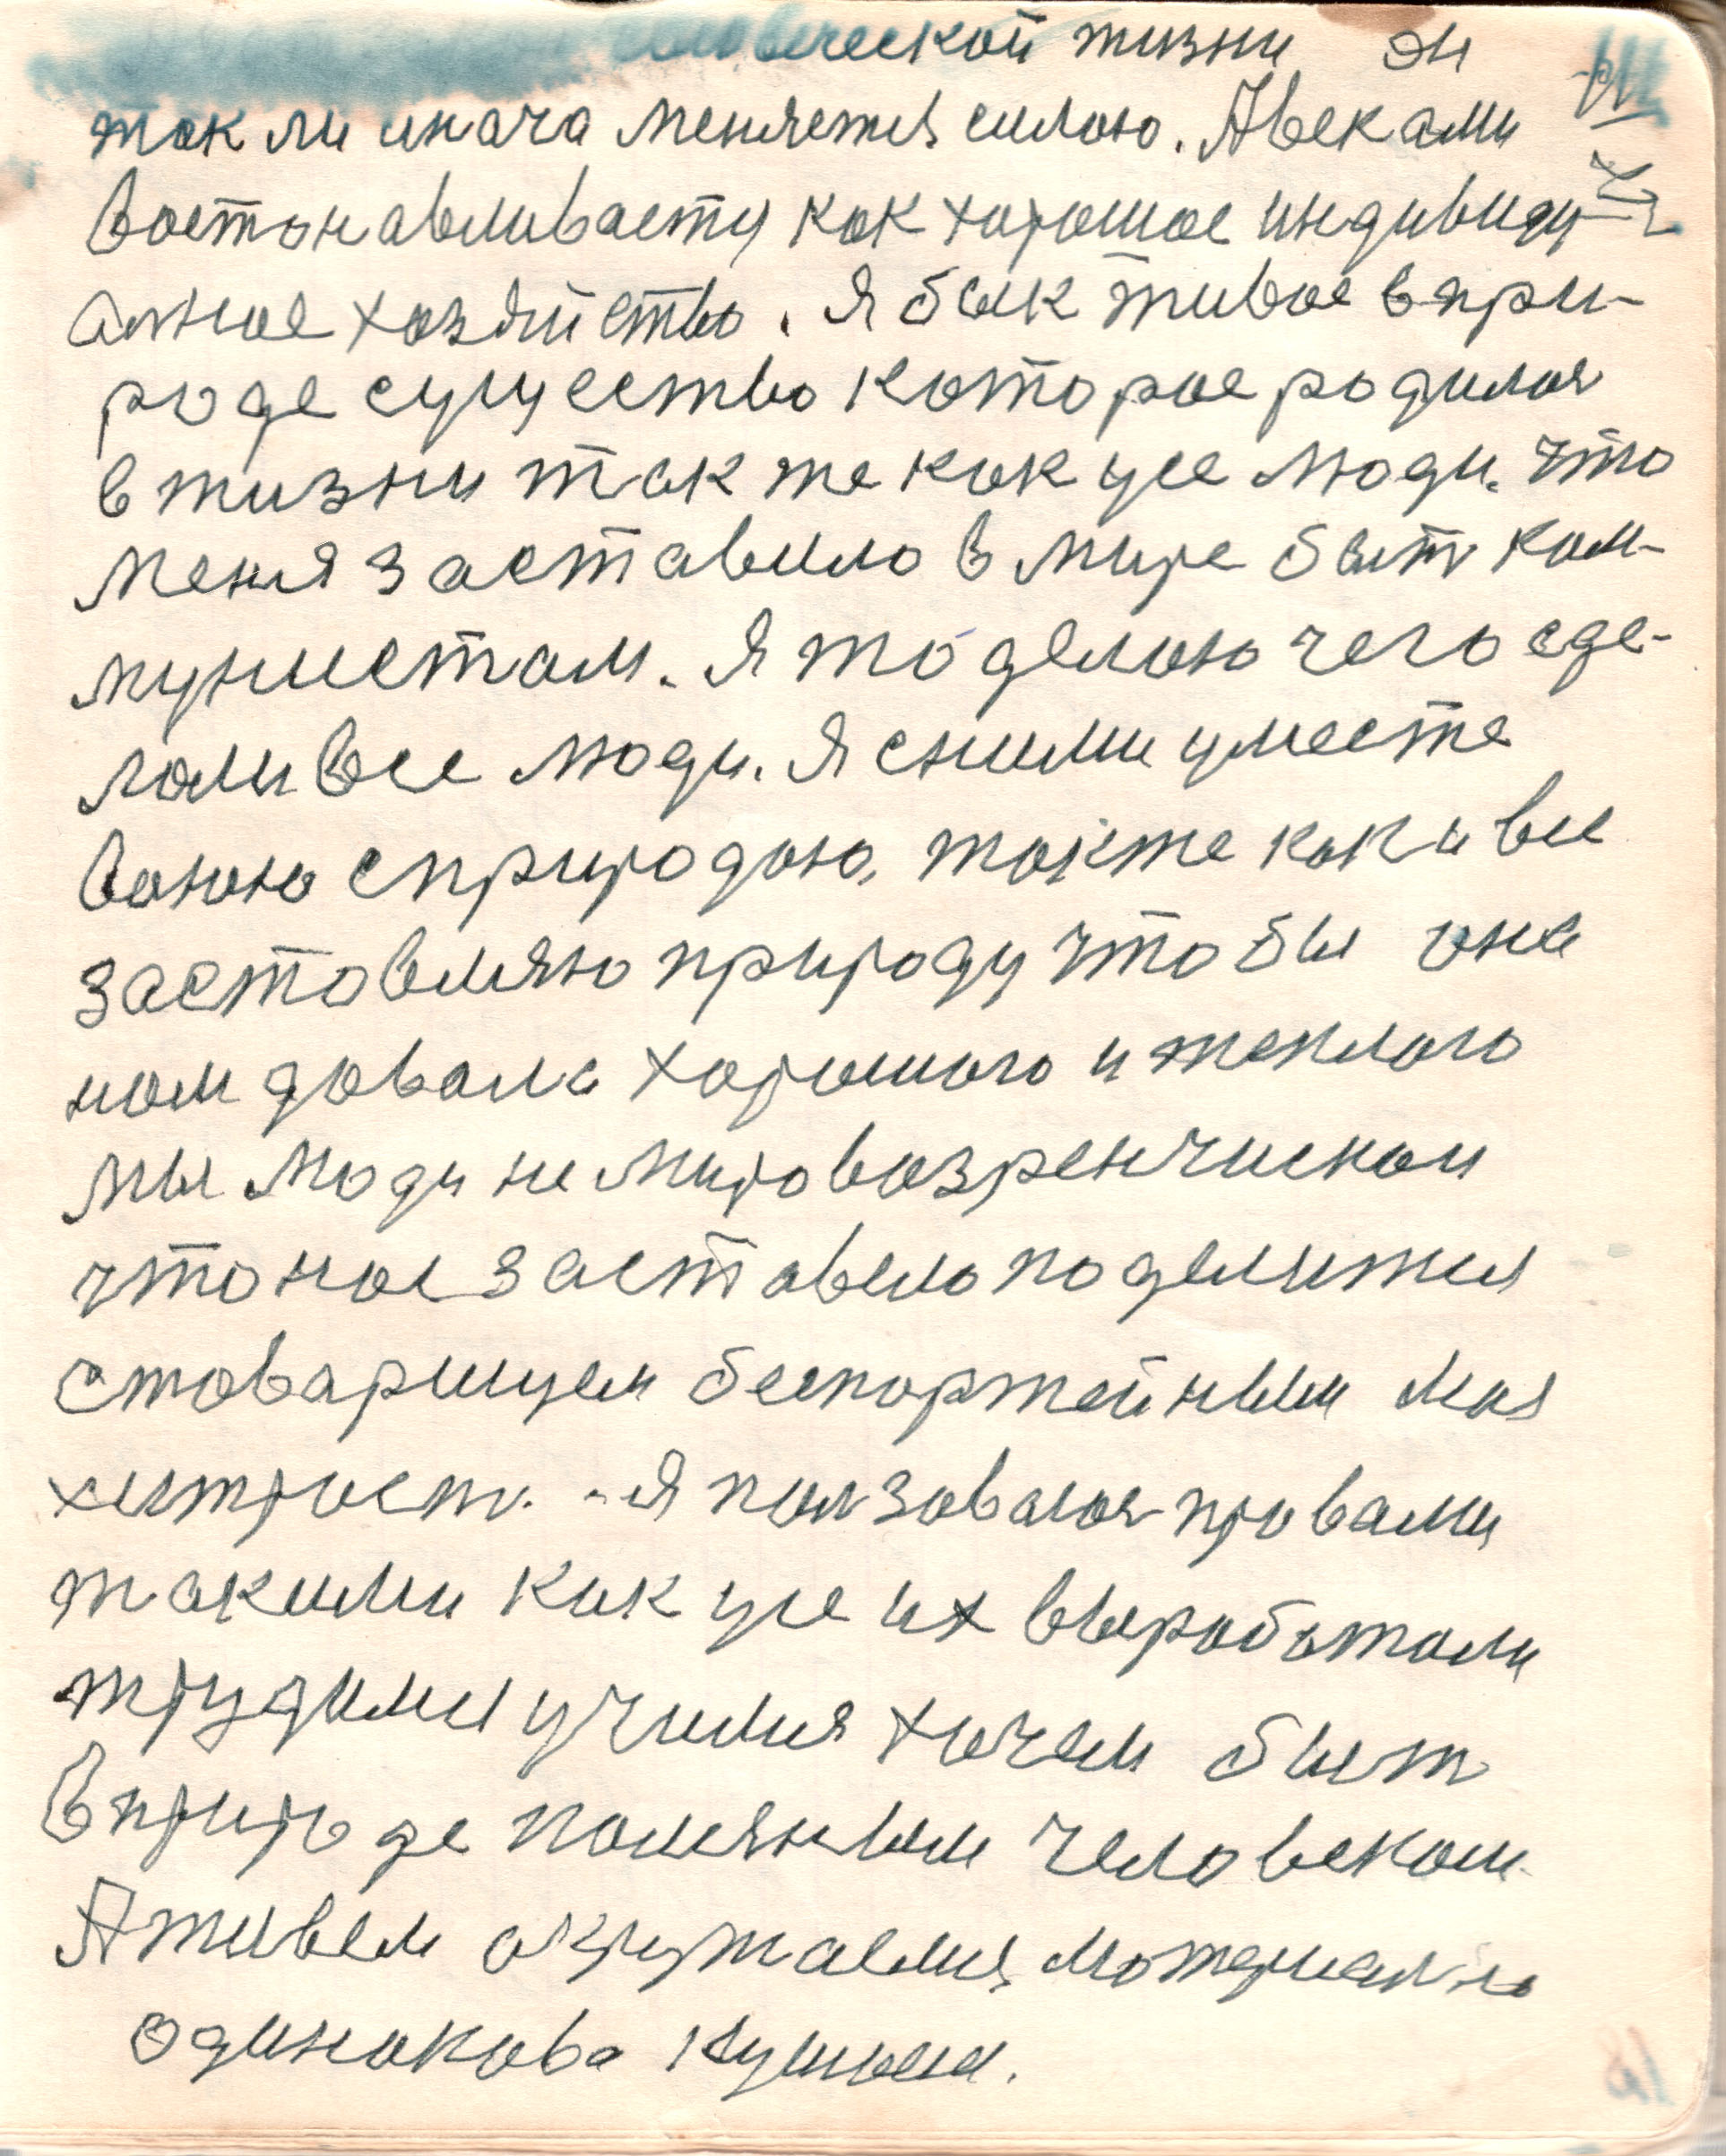 человеческой жизни он
так ли инача меняется силою. А веками
востонавливаету как хорошое индивиду
алное хозяйство. Я бык живое в при-
роде сущуество которое родился
в жизни так же как усе люди. что
меня заставило в мире быть ком-
мунистам. Я то делаю чего сде-
лали все люди. Я сними уместе
воюю сприродою, также как и все
застовляю природу чтобы она
нам довала хорошого и теплого
мы люди не мировозренчиском
что нас заставело поделится
стоварищем беспортейным моя
хитрость. Я ползовался провами
такими как усе их выработали
трудимся училися хочем быть
в природе полезным человеком.
А живем окружаемся, мотериално
одинокова кушаем.